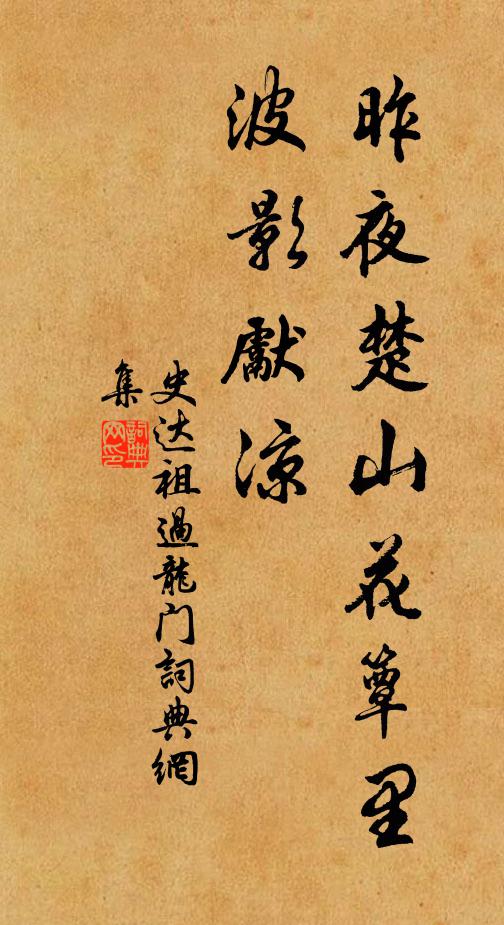 昨夜楚山花簟里
波影獻凉
史达祖過龍门詞典網
集
詞典網印